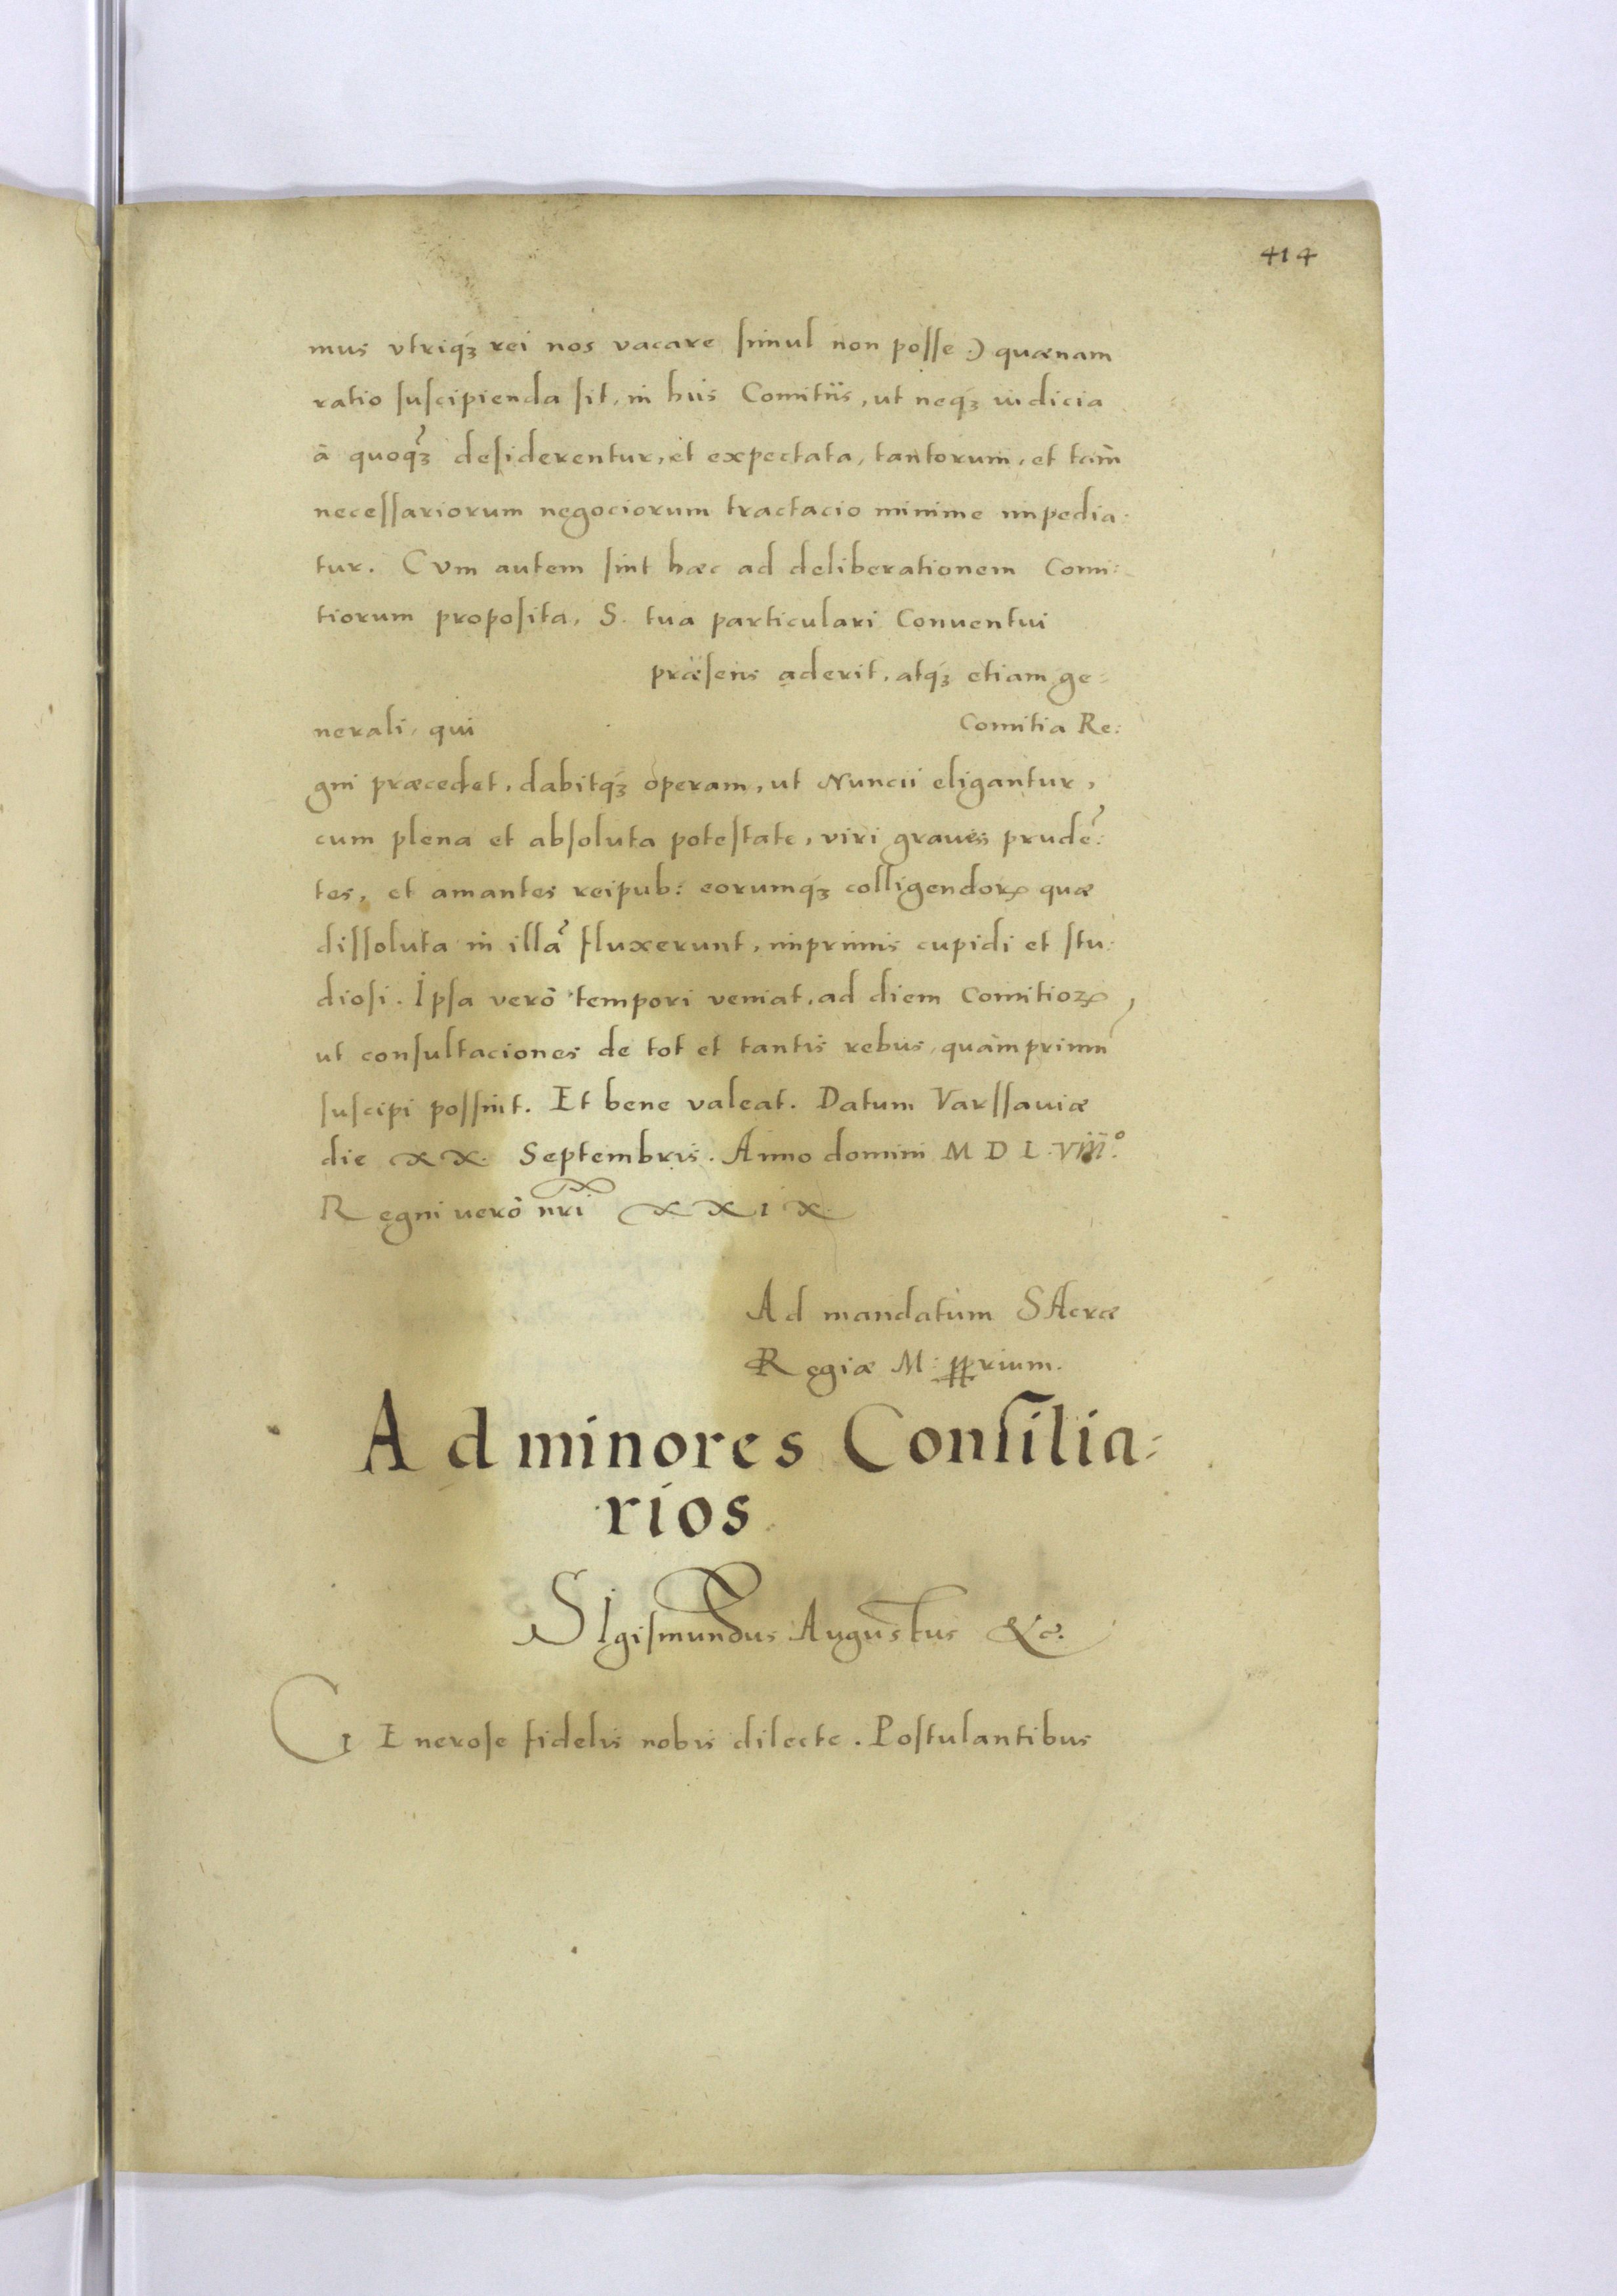 414
mus vtriqꝫ rei nos vacare simul non posse :) quænam
ratio suscipienda sit, in hiis Comitiis, ut neqꝫ iudicia
à quoqꝫ̃ desiderentur, et expectata, tantorum, et tam
necessariorum negociorum tractacio minime impedia:
tur. CVm autem sint hæc ad deliberationem Comi:
tiorum proposita, S. tua particulari Conuentui
præsens aderit, atqꝫ etiam ge:
nerali, qui Comitia Re:
gni præcedet, dabitqꝫ operam, ut Nuncii eligantur,
cum plena et absoluta potestate, viri graues prudẽ:
tes, et amantes reipub: eorumqꝫ colligendoꝝ quæ
dissoluta in illã fluxerunt, inprimis cupidi et stu:
diosi. Ipsa verò tempori veniat, ad diem Comitioꝝ,
ut consultaciones de tot et tantis rebus, quàmprimũ
suscipi possint. Et bene valeat. Datum Varssauiæ
die XX. Septembris. Anno domini M D L VIII.º
Regni uerò nr̃i XXIX.
Ad mandatum SAcræ
Regiæ M: ꝓprium.
Ad minores Consilia:
rios
SIgismundus Augustus &c.
GEnerose fidelis nobis dilecte. Postulantibus